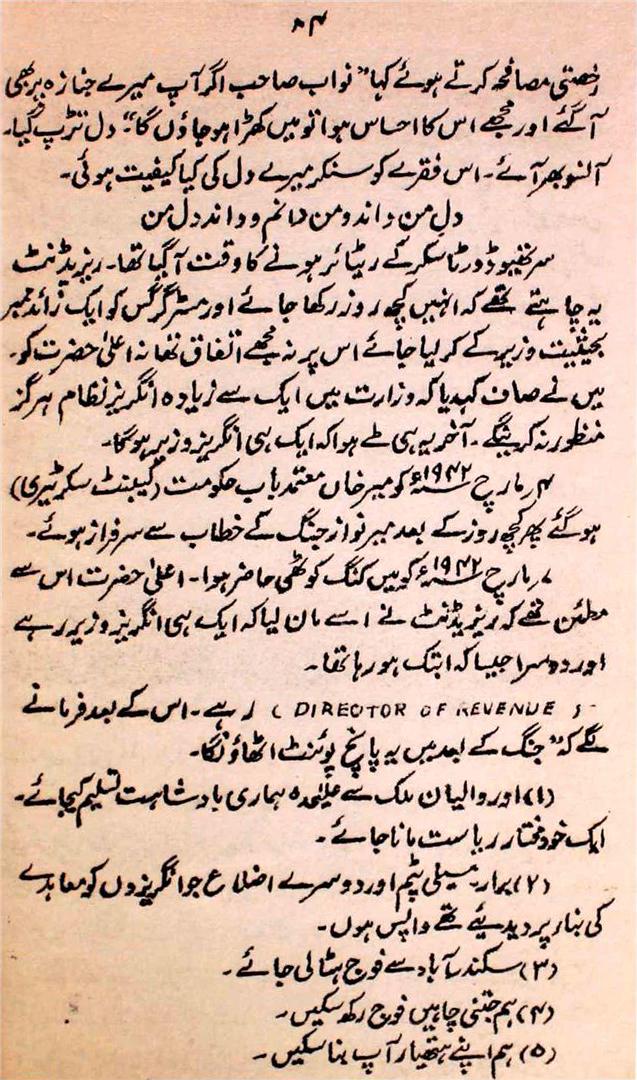 ۸۴
رخصتی مصافحہ کرتے ہوئے کہا "نواب صاحب اگر آپ میرے جنازہ پر بھی
آگئے اور مجھے اس کا احساس ہوا تو میں کھڑا ہو جاؤں گا"۔ دل تڑپ گیا۔
آنسو بھر آئے۔ اس فقرے کو سنکر میرے دل کی کیا کیفیت ہوئی۔
دلِ من داند و من دانم و داند دل من
سر تھیوڈور ٹاسکر کے ریٹائر ہونے کا وقت آگیا تھا۔ ریزیڈنٹ
یہ چاہتے تھے کہ انہیں کچھ روز رکھا جائے اور مسٹر گرگسن کو ایک زائد ممبر
بحیثیت وزیر کے کر لیا جائے اس پر نہ مجھے اتفاق تھا نہ اعلیٰ حضرت کو۔
میں نے صاف کہدیا کہ وزارت میں ایک سے زیادہ انگریز نظام ہرگز
منظور نہ کرینگے۔ آخر یہ ہی طے ہوا کہ ایک ہی انگریز وزیر ہوگا۔
۴؍ مارچ ۱۹۴۲ء کو میر خاں معتمد باب حکومت (کیبنٹ سکرٹیری)
ہو گئے پھر کچھ روز کے بعد میر نواز جنگ کے خطاب سے سرفراز ہوئے۔
۷؍ مارچ ۱۹۴۲ء کو میں کنگ کوٹھی حاضر ہوا۔ اعلیٰ حضرت اس سے
مطئن تھے کہ ریزیڈنٹ نے اسے مان لیا کہ ایک ہی انگریز وزیر رہے
اور دوسرا جیسا کہ ابتک ہو رہا تھا۔
(DIRECTOR OF REVENUE) رہے۔ اس کے بعد فرمانے
لگے کہ "جنگ کے بعد میں یہ پانچ پوئنٹ اٹھاؤنگا۔
(۱) اور والیان ملک سے علیٰحدہ ہماری بادشاہت تسلیم کیجائے۔
ایک خود مختار ریاست مانا جائے۔
(۲) برار۔ مسیلی پٹم اور دوسرے اضلاع جو انگریزوں کو معاہدے
کی بناء پر دیدیئے تھے واپس ہوں۔
(۳) سکندرآباد سے فوج ہٹالی جائے۔
(۴) ہم جتنی چاہیں فوج رکھ سکیں۔
(۵) ہم اپنے ہتھیار آپ بنا سکیں۔